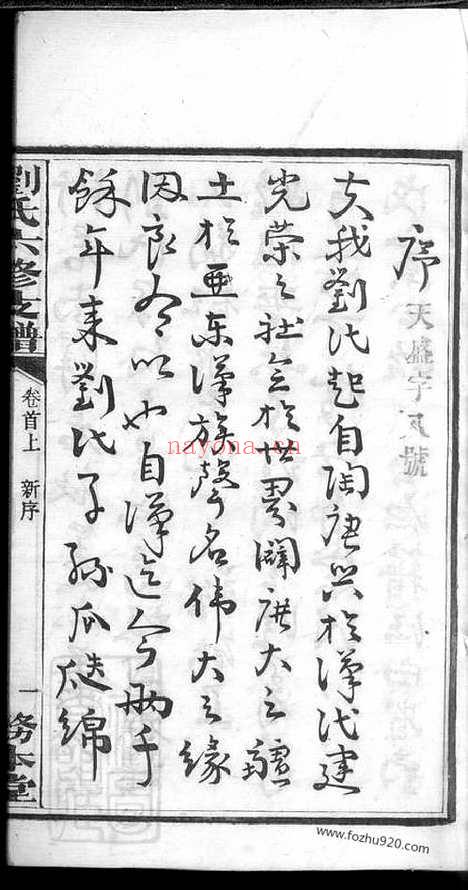 序
天盛字 號
夫我劉氏起自陶唐興於漢代建
光榮之社會於世界闢廣大之疆
土於亞東漢族聲名偉大之緣
因良有以也自漢迄今兩千
餘年來劉氏子孫瓜瓞綿
劉氏六修之譜
卷首上 新序
一
務本堂
nayona.cn
www.fozhu920.com